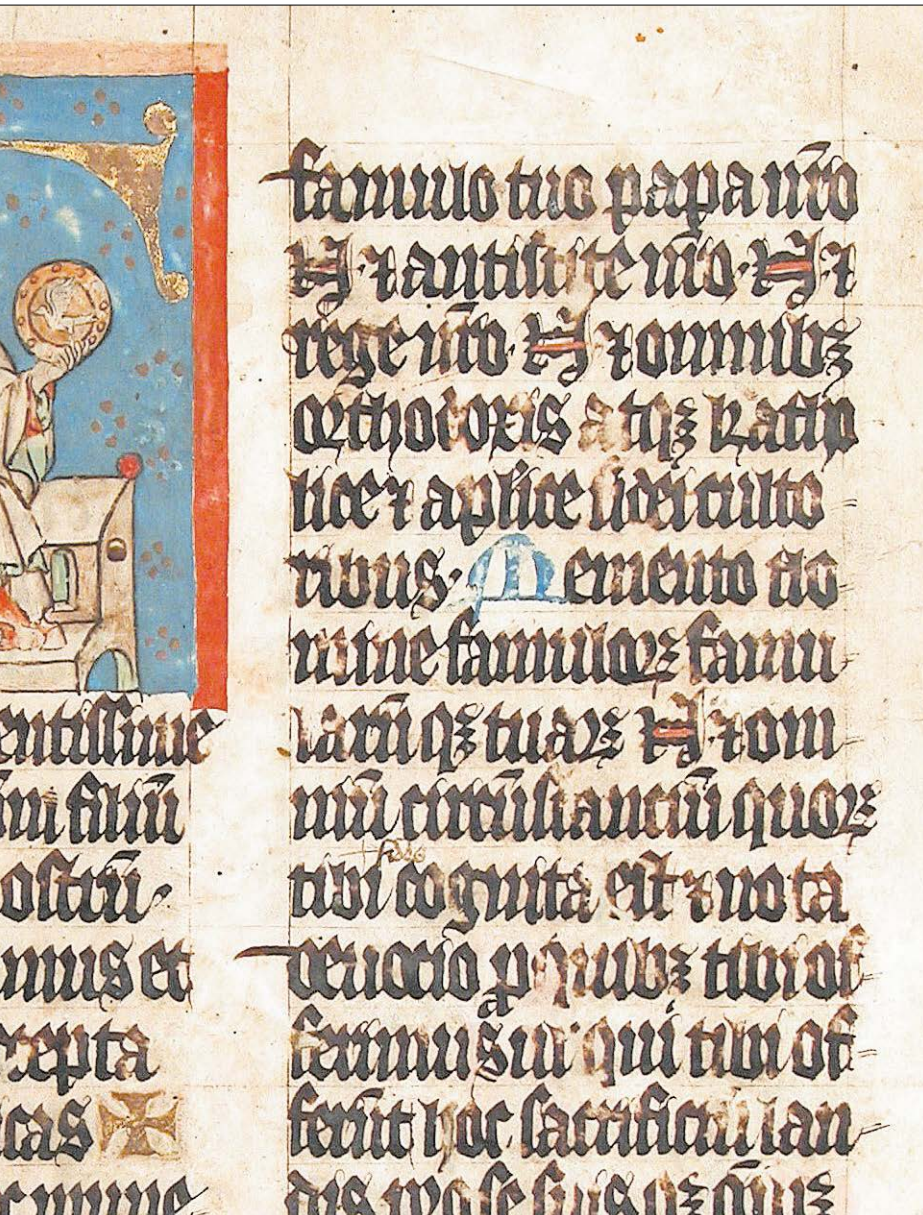 entissime
um filiū
ostrū·
amus et
cepta
icas
famulo tuo papa nr̄o
N ⁊ antistite nr̄o · N ⁊
rege nr̄o · N ⁊ omnibꝫ
orthodoxis atqꝫ katħo
lice ⁊ apl̄ice fidei culto
ribus · Memento do
mine famuloꝝ famu
larūqꝫ tuaꝝ N ⁊ om
niū circūstanciū quoꝝ
fides
tibi cognita est ⁊ nota
deuocio ꝓ quibꝫ tibi of
ferimus ul̓ qui tibi of
ferūt hoc sacrificiū lau
dis pro se suisqꝫ om̄ibꝫ